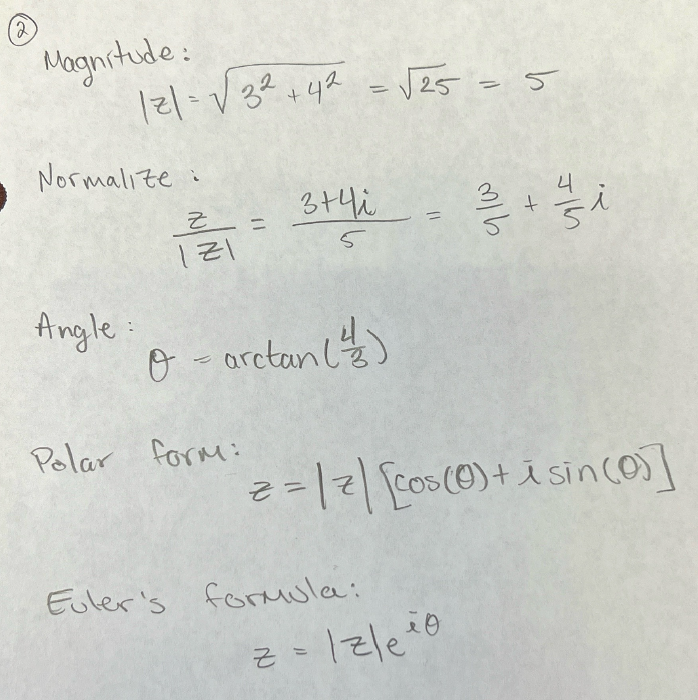 ②
Magnitude:
|z| = √(3² + 4²) = √25 = 5
Normalize:
z/|z| = (3+4i)/5 = 3/5 + 4/5 i
Angle:
θ = arctan(4/3)
Polar form:
z = |z| [cos(θ) + i sin(θ)]
Euler's formula:
z = |z|e^{iθ}